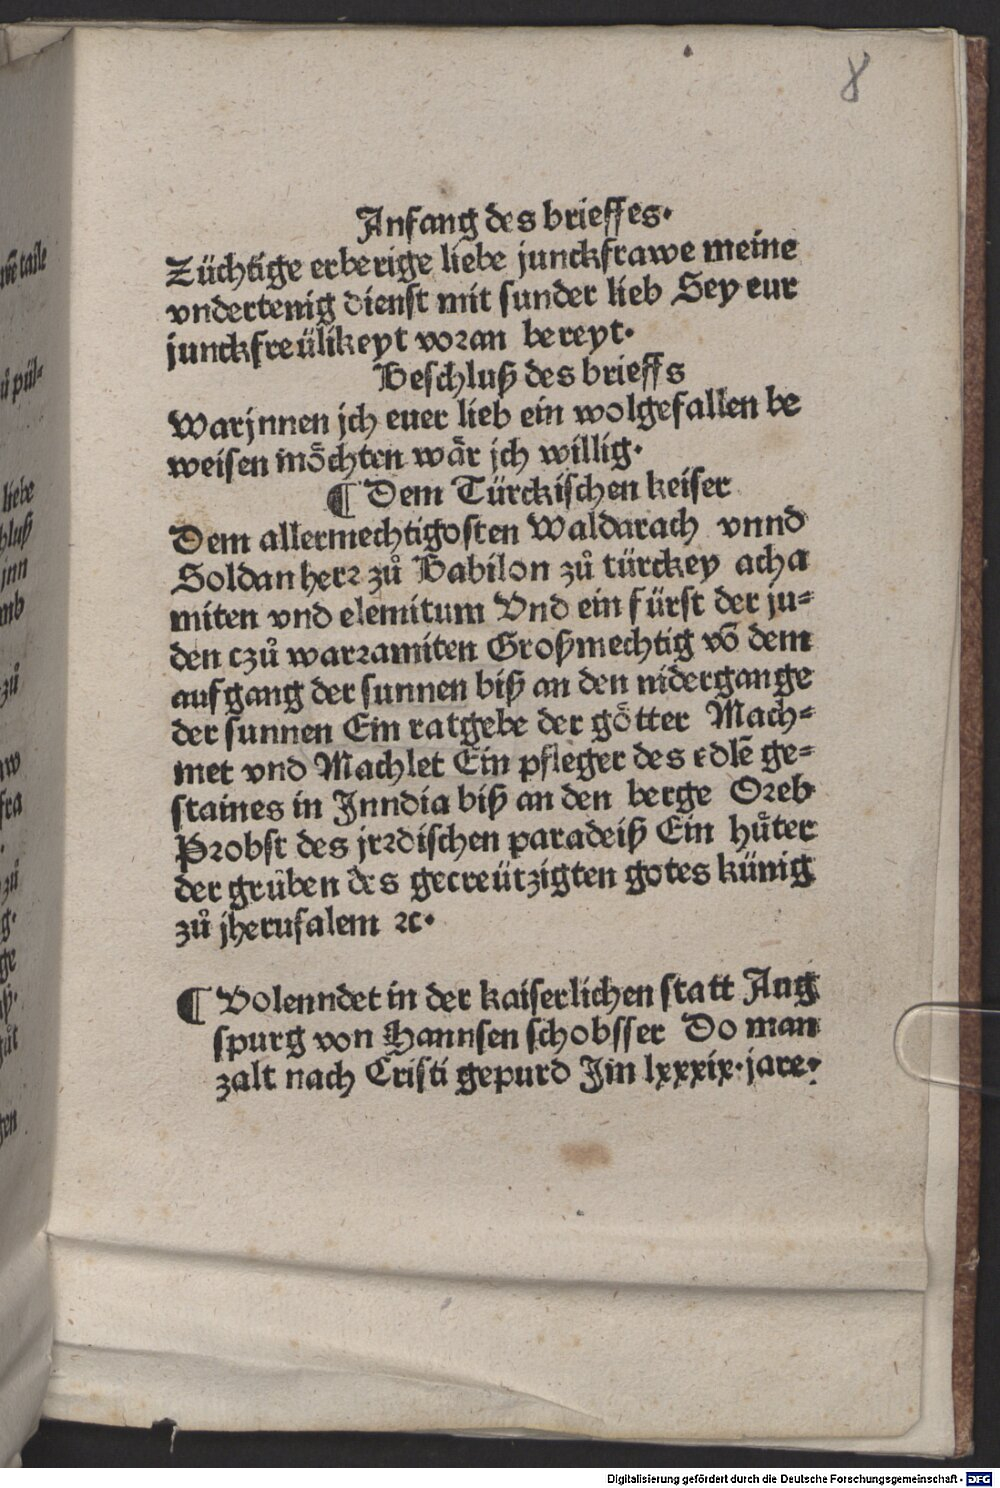 8
Anfang des brieffes.
Züchtige erberige liebe junckfrawe meine
vndertenig dienst mit sunder lieb Sey eur
junckfreülikeyt voꝛan bereyt.
Beschluß des brieffs
Warjnnen jch euer lieb ein wolgefallen be
weisen moͤchten waͤr jch willig.
¶ Dem Türckischen keiser
Dem allermechtigosten Waldarach vnnd
Soldan herꝛ zuͦ Babilon zuͦ türckey acha
miten vnd elemitum Vnd ein fürst der ju⸗
den czuͦ warꝛamiten Großmechtig võ dem
aufgang der sunnen biß an den nidergange
der sunnen Ein ratgebe der goͤtter Mach⸗
met vnd Machlet Ein pfleger des edlẽ ge⸗
staines in Inndia biß an den berge Oꝛeb
Pꝛobst des jrꝛdischen paradeiß Ein huͤter
der gruͤben des gecreützigten gotes künig
zuͦ jherusalem ꝛc.
¶ Volenndet in der kaiserlichen statt Aug
spurg von Hannsen schobsser Do man
zalt nach Cristi gepurd Jm lxxxix. jare.
liebe
zuͦ
zuͦ
Digitalisierung gefördert durch die Deutsche Forschungsgemeinschaft - DFG